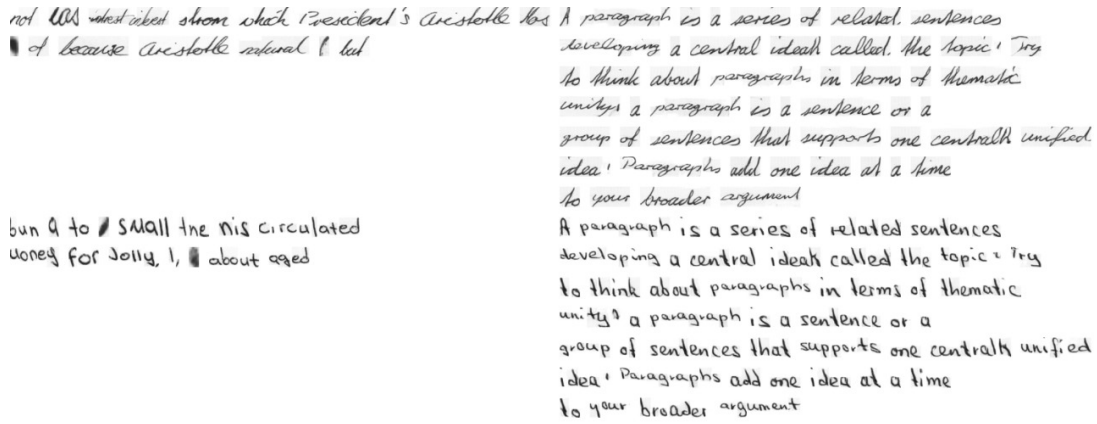 not was which President's Aristotle has
of because Aristotle natural ( but
A paragraph is a series of related. sentences
developing a central ideah called. the topic, Try
to think about paragraphs in terms of thematic
unitys a paragraph is a sentence or a
group of sentences that supports one centralh unified
idea, Paragraphs add one idea at a time
to your broader argument
bun 9 to small the nis circulated
money for Jolly, 1, about aged
A paragraph is a series of related sentences
developing a central ideah called the topic, Try
to think about paragraphs in terms of thematic
unity, a paragraph is a sentence or a
group of sentences that supports one centralh unified
idea, Paragraphs add one idea at a time
to your broader argument